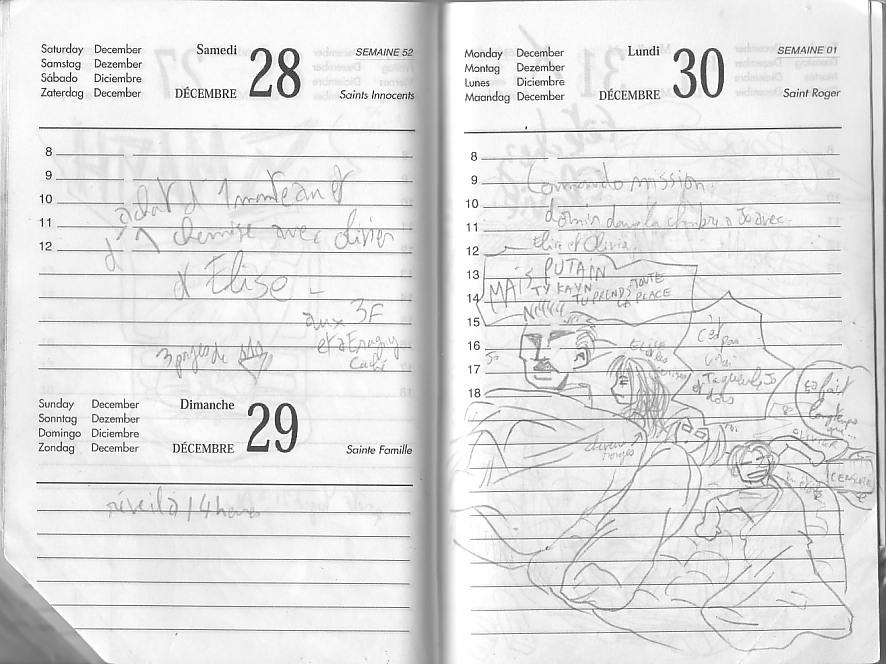 Saturday December
Samstag Dezember
Sábado Diciembre
Zaterdag December
Samedi
28
DÉCEMBRE
SEMAINE 52
Saints Innocents
8
9
10
11
12
achat d'1 manteau et
d'1 chemise avec olivier
d'Elise -
aux 3F
et à Eragny
3 pages de
Sunday December
Sonntag Dezember
Domingo Diciembre
Zondag December
Dimanche
29
DÉCEMBRE
Sainte Famille
réveil à 14 heures
Monday December
Montag Dezember
Lunes Diciembre
Maandag December
Lundi
30
DÉCEMBRE
SEMAINE 01
Saint Roger
8
9
10
11
12
13
14
15
16
17
18
Commando mission.
dormir dans la chambre à Jo avec
Elise et Olivia.
MAIS PUTAIN
TU PRENDS TOUTE
LA PLACE
c'est
pas
vrai
Ta gueule Jo
et dors
ça fait
longtemps
que...
Elise
cheveux
rouges
OLIVIER